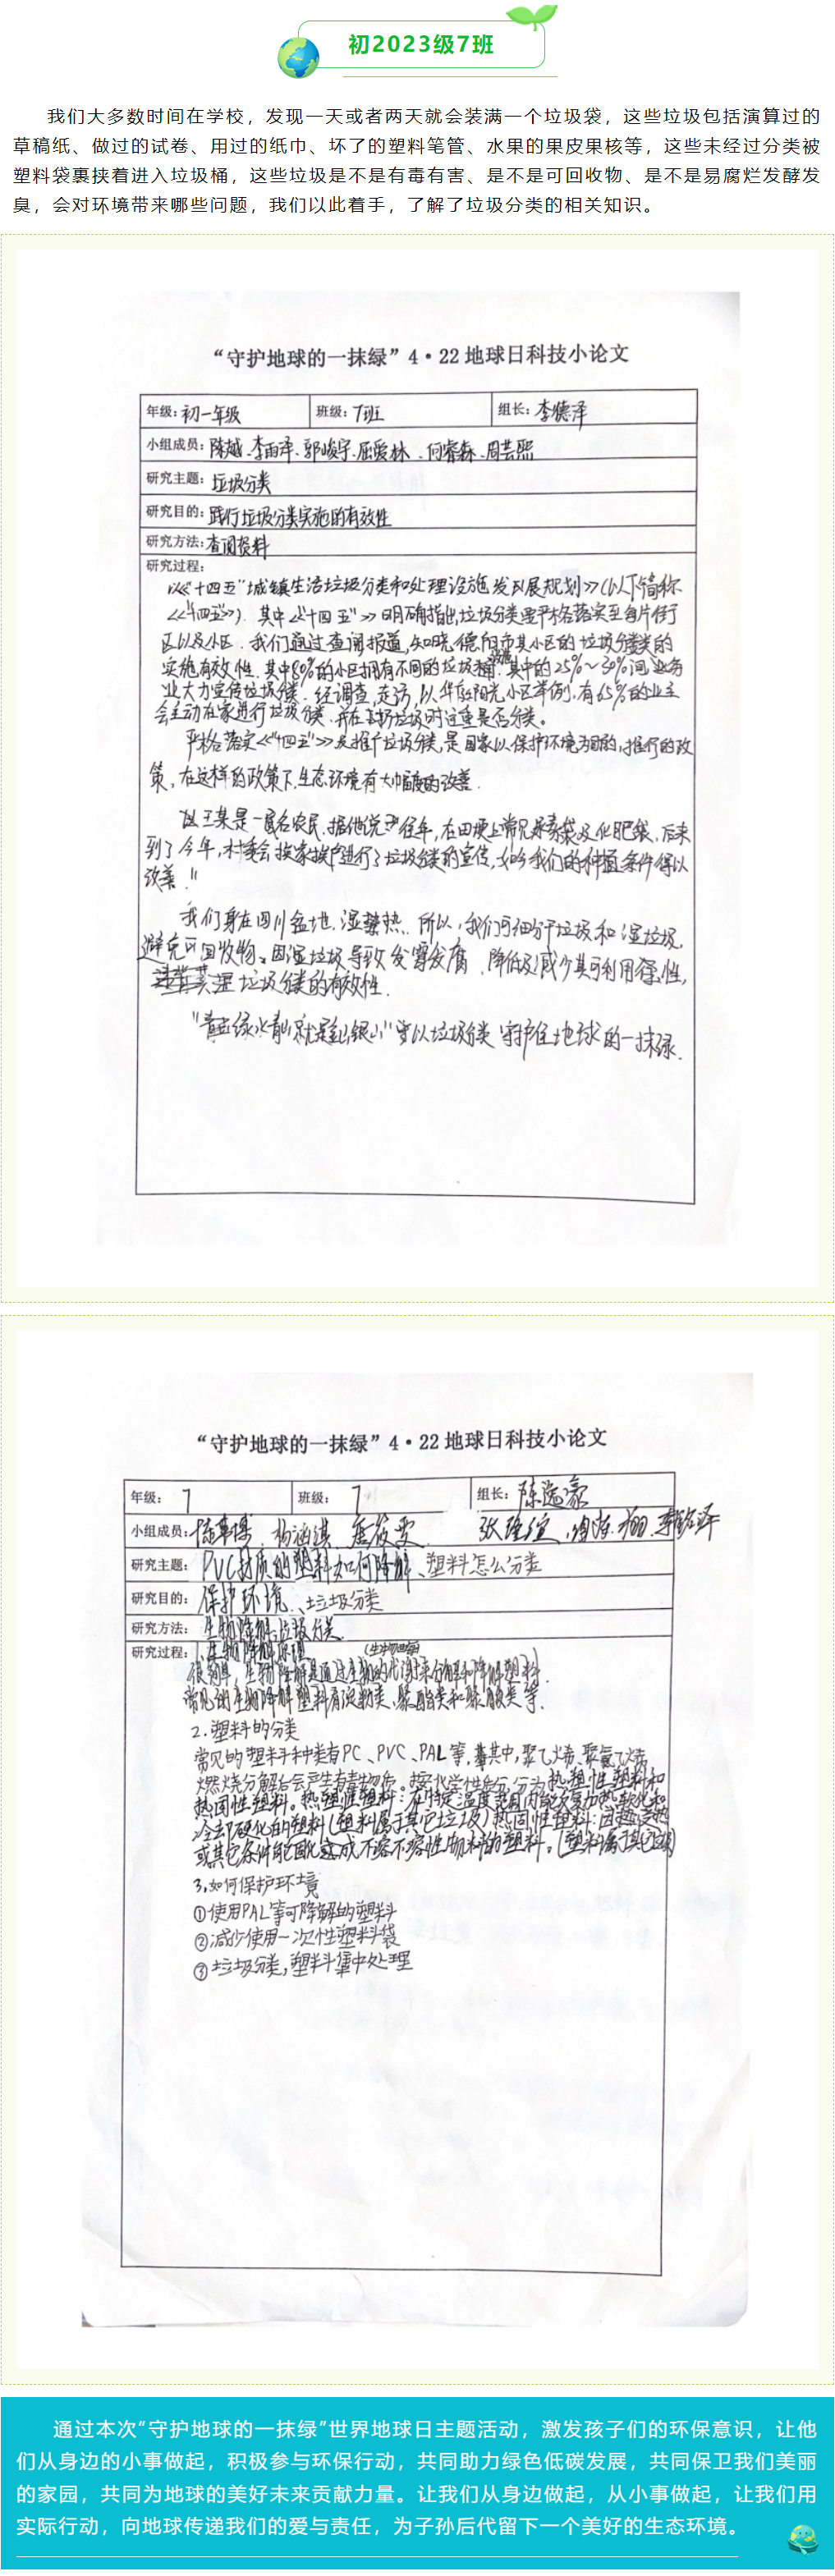 初2023级7班
我们大多数时间在学校，发现一天或者两天就会装满一个垃圾袋，这些垃圾包括演算过的
草稿纸、做过的试卷、用过的纸巾、坏了的塑料笔管、水果的果皮果核等，这些未经过分类被
塑料袋裹挟着进入垃圾桶，这些垃圾是不是有毒有害、是不是可回收物、是不是易腐烂发酵发
臭，会对环境带来哪些问题，我们以此着手，了解了垃圾分类的相关知识。
“守护地球的一抹绿”4·22地球日科技小论文
年级：初一年级 班级：7班 组长：李德泽
小组成员：陈越、李雨泽、郭峻宇、屈爱林、何睿森、周芸熙
研究主题：垃圾分类
研究目的：践行垃圾分类实施的有效性
研究方法：查阅资料
研究过程：
以《“十四五”城镇生活垃圾分类和处理设施发展规划》(以下简称
《“十四五”》)．其中《“十四五”》明确指出，垃圾分类要严格落实至每片街
区以及小区．我们通过查阅报道，知晓德阳市某小区的垃圾分类的
实施有效性．其中80%的小区拥有不同的垃圾桶．其中的25%～30%
业大力宣传垃圾分类．经调查，走访，以华红阳光小区举例，有65%的业主
会主动在家进行垃圾分类，并在扔垃圾时注重是否分类。
严格落实《“十四五”》及推行垃圾分类，是国家以保护环境为目的，推行的政
策，在这样的政策下，生态环境有大幅度的改善．
王某是一名农民，据他说：“往年，在田埂上常见尿素袋及化肥袋，后来
到了今年，村委会挨家挨户进行了垃圾分类的宣传，如今我们的种植条件得以
改善．”
我们身在四川盆地，湿热．所以，我们可细分干垃圾和湿垃圾，
避免可回收物因湿垃圾导致发霉发腐．降低及减少其可利用性，
垃圾分类的有效性．
“绿水青山就是金山银山”以垃圾分类守护住地球的一抹绿．
“守护地球的一抹绿”4·22地球日科技小论文
年级：7 班级：7 组长：陈逸豪
小组成员：
研究主题：PVC材质的塑料如何降解、塑料怎么分类
研究目的：保护环境、垃圾分类
研究方法：生物降解，垃圾分类
研究过程：1.生物降解原理
生物降解是通过生物的代谢来分解和降解塑料．
常见的生物降解塑料有淀粉类、聚酯类和聚酸类等．
2.塑料的分类
常见的塑料种类有PC、PVC、PAL等，其中，聚乙烯、聚氯乙烯
燃烧分解后会产生有毒物质。按化学性质可分为热塑性塑料和
热固性塑料。热塑性塑料：在特定温度范围内能反复加热软化和
冷却硬化的塑料(塑料属于其它垃圾)热固性塑料：因受热
或其它条件能固化成不溶不熔性物料的塑料。(塑料属于其它垃圾)
3.如何保护环境
①使用PAL等可降解的塑料
②减少使用一次性塑料袋
③垃圾分类，塑料集中处理
通过本次“守护地球的一抹绿”世界地球日主题活动，激发孩子们的环保意识，让他
们从身边的小事做起，积极参与环保行动，共同助力绿色低碳发展，共同保卫我们美丽
的家园，共同为地球的美好未来贡献力量。让我们从身边做起，从小事做起，让我们用
实际行动，向地球传递我们的爱与责任，为子孙后代留下一个美好的生态环境。